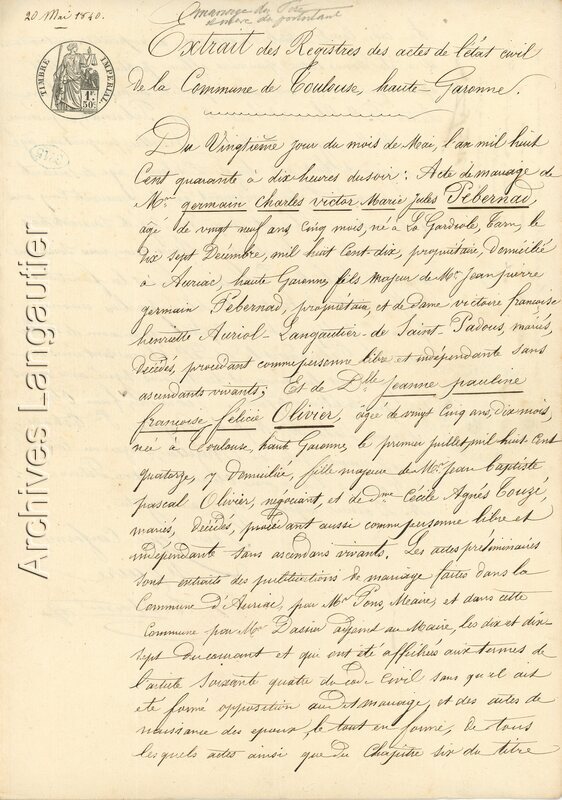 20 Mai 1840.
mariage du
TIMBRE IMPÉRIAL
1F 50c
Extrait des Registres des actes de l'état civil
de la Commune de Toulouse, haute-Garonne.
Du Vingtième jour du mois de Mai, l'an mil huit
Cent quarante à dix heures du soir; Acte de mariage de
Mr. germain Charles victor Marie Jules Pebernad,
âgé de vingt neuf ans cinq mois, né à La Gardiole, Tarn, le
dix sept Décembre, mil huit Cent dix, propriétaire, domicilié
à Auriac, haute Garonne, fils majeur de Mr. Jean pierre
germain Pebernad, propriétaire, et de Dame victoire françoise
henriette Auriol-Langautier-de Saint-Padous, mariés,
décédés, procédant comme personne libre et indépendante sans
ascendants vivants; Et de Dlle Jeanne pauline
françoise félicie Olivier, agée de vingt Cinq ans, dix mois,
née à Toulouse, haute Garonne, le premier juillet mil huit Cent
quatorze, y domiciliée, fille majeure de Mr. Jean Baptiste
pascal Olivier, négociant, et de dme Cécile Agnés Touzé,
mariés, décédés, procédant aussi comme personne libre et
indépendante sans ascendans vivants. Les actes préliminaires
sont extraits des publications de mariage faites dans la
Commune d'Auriac, par Mr. Pons, Maire, et dans cette
Commune par Mr. Dassier adjoint au Maire, les dix et dix-
sept du courant et qui ont été affichés aux termes de
l'article Soixante quatre du code Civil sans qu'il ait
été formé opposition audit mariage, et des actes de
naissance des epoux, le tout en forme, de tous
lesquels actes ainsi que du Chapitre six du titre
Archives Langautier